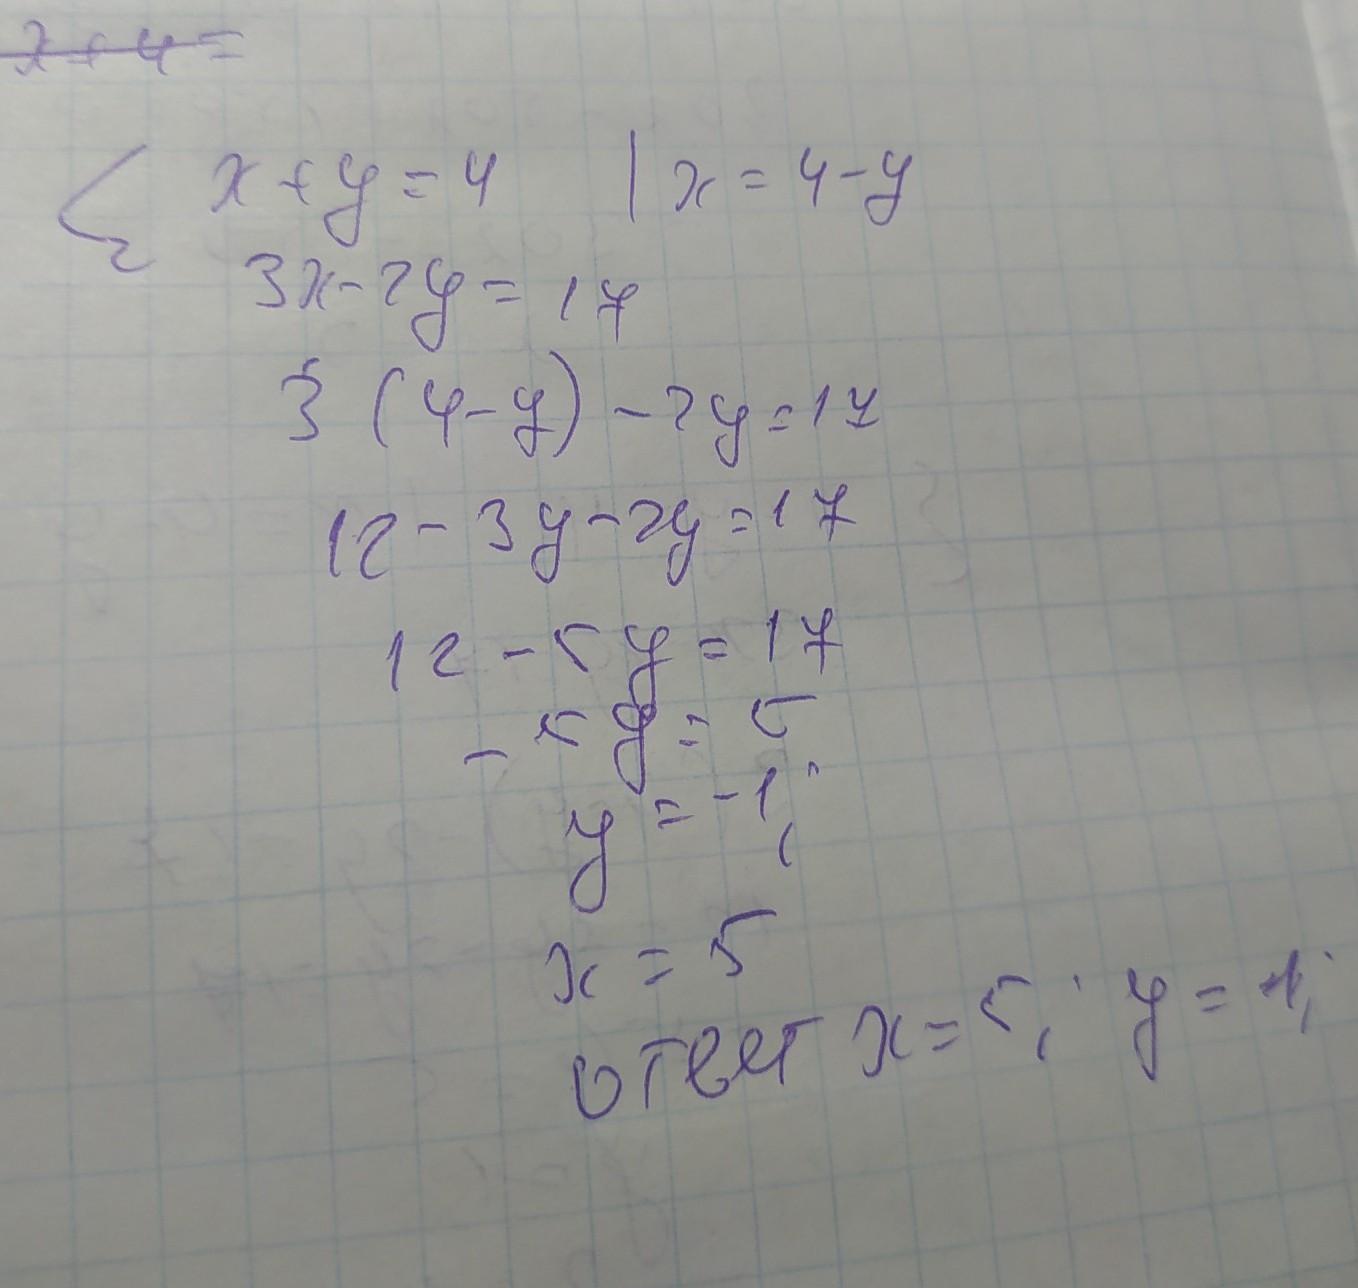 x + y = 4 | x = 4 - y
3x - 2y = 17
3 (4 - y) - 2y = 17
12 - 3y - 2y = 17
12 - 5y = 17
- 5y = 5
y = -1;
x = 5
ответ x = 5; y = -1;